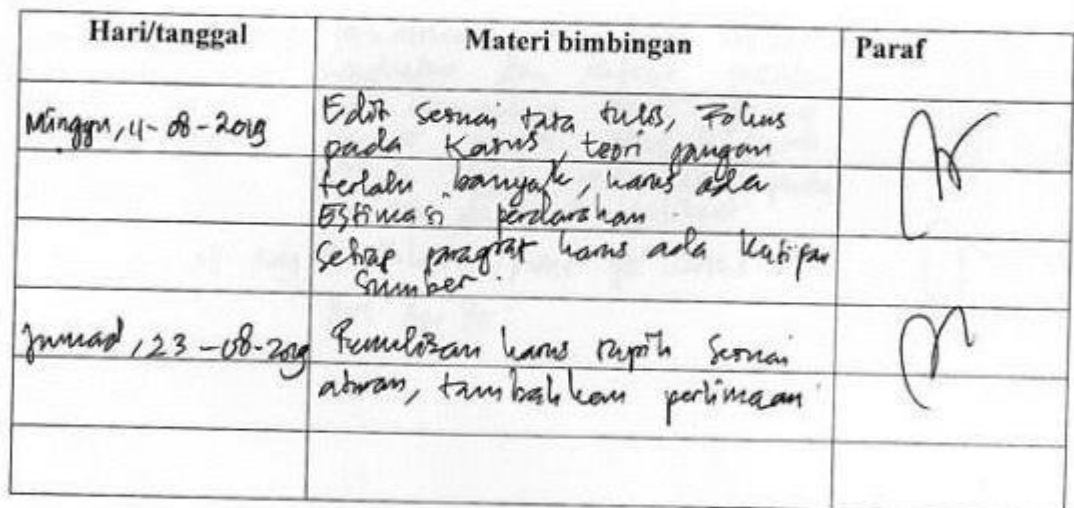 Hari/tanggal Materi bimbingan Paraf
Minggu, 11-08-2019 Edit sesuai tata tulis, Fokus
pada Kasus, teori jangan
terlalu banyak, harus ada
Estimasi perdarahan.
Setiap paragraf harus ada kutipan
Sumber.
Jumad, 23-08-2019 Penulisan harus rapih sesuai
aturan, tambahkan